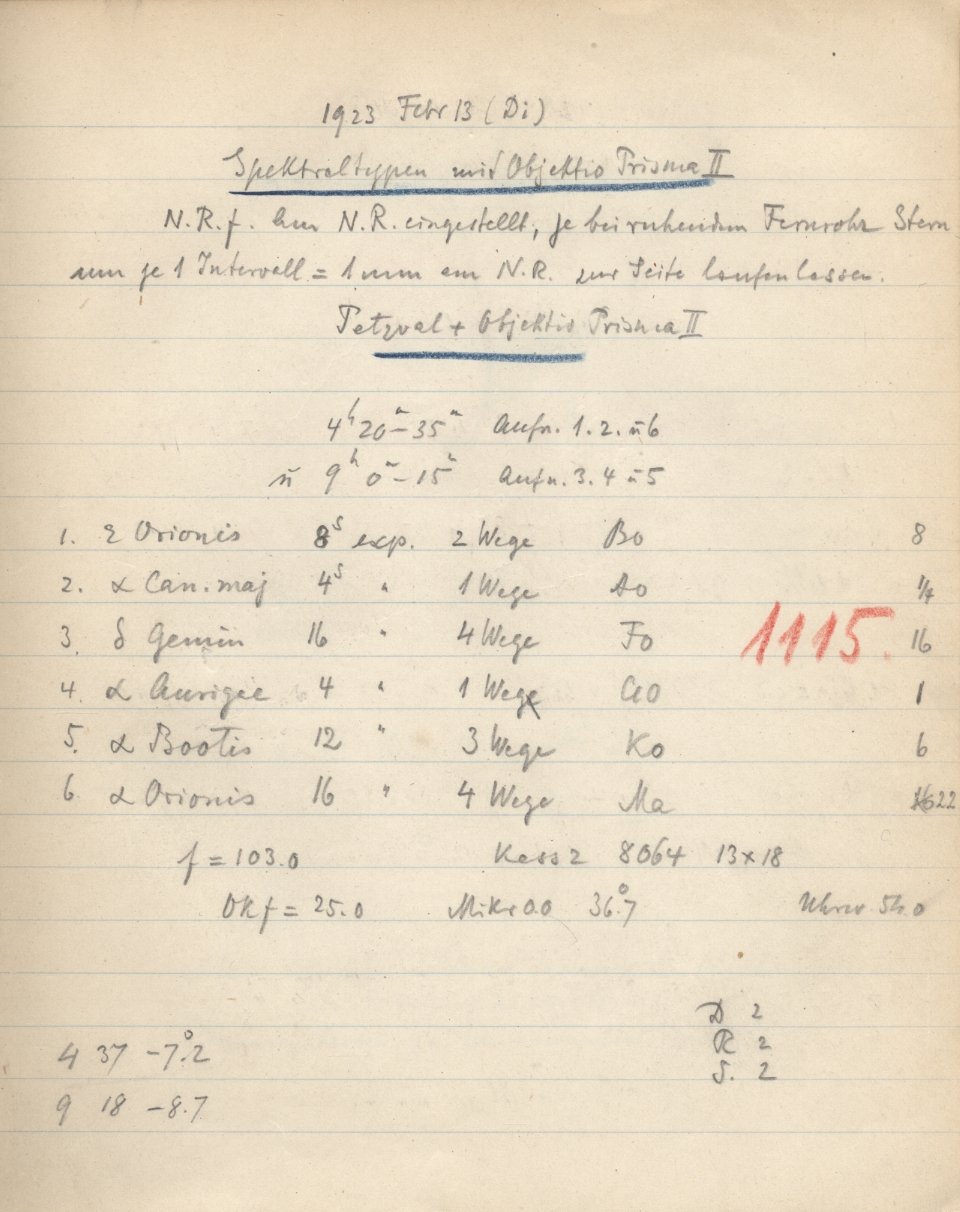 1923 Febr 13 (Di)
Spektraltypen mit Objektiv Prisma II
N.R.f. am N.R. eingestellt, je bei ruhendem Fernrohr Stern
um je 1 Intervall = 1 mm am N.R. zur Seite laufen lassen.
Petzval + Objektiv Prisma II
4h 20m-35m Aufn. 1. 2. ü 6
ü 9h 0m-15m Aufn. 3. 4 ü 5
1. ε Orionis 8s exp. 2 Wege B0 8
2. α Can. maj 4s " 1 Wege A0 1/4
3. δ Gemin 16 " 4 Wege F0 16
1115.
4. α Aurigae 4 " 1 Weg G0 1
5. α Bootis 12 " 3 Wege K0 6
6 α Orionis 16 " 4 Wege Ma 22
f = 103.0 Kass 2 8064 13×18
OKf = 25.0 Mikr 0.0 36°.7 Uhrw 54.0
D 2
R 2
S. 2
4 37 -7°.2
9 18 -8.7